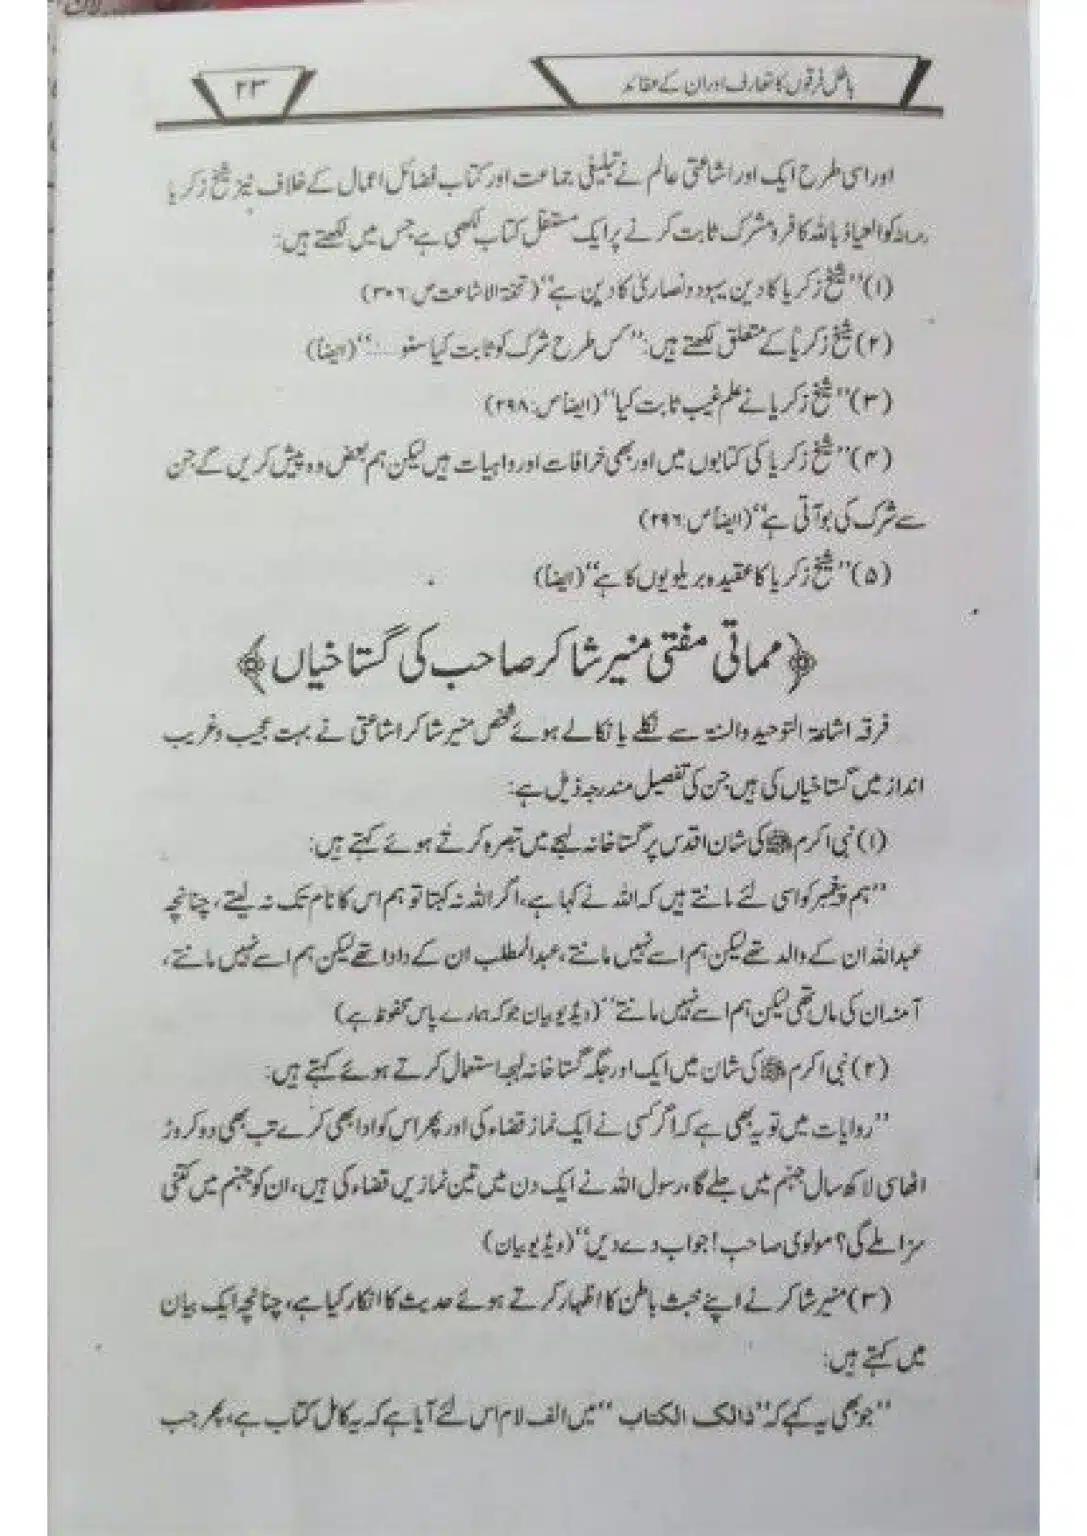 باطل فرقوں کا تعارف اور ان کے عقائد
۲۳
اور اسی طرح ایک اور اشاعتی عالم نے تبلیغی جماعت اور کتاب فضائل اعمال کے خلاف نیز شیخ زکریا
رحمہ اللہ کو العیاذ باللہ کافر و مشرک ثابت کرنے پر ایک مستقل کتاب لکھی ہے جس میں لکھتے ہیں:
(۱)"شیخ زکریا کا دین یہود و نصاریٰ کا دین ہے" (تحفۃ الاشاعت ص:۳۰۶)
(۲) شیخ زکریاؒ کے متعلق لکھتے ہیں: "کس طرح شرک کو ثابت کیا سنو ....." (ایضاً)
(۳)"شیخ زکریا نے علم غیب ثابت کیا" (ایضاً ص:۲۹۸)
(۴)"شیخ زکریا کی کتابوں میں اور بھی خرافات اور واہیات ہیں لیکن ہم بعض وہ پیش کریں گے جن
سے شرک کی بو آتی ہے" (ایضاً ص:۲۹۶)
(۵)"شیخ زکریا کا عقیدہ بریلویوں کا ہے" (ایضاً)
﴿مماتی مفتی منیر شاکر صاحب کی گستاخیاں﴾
فرقہ اشاعۃ التوحید والسنۃ سے نکلے یا نکالے ہوئے شخص منیر شاکر اشاعتی نے بہت عجیب و غریب
انداز میں گستاخیاں کی ہیں جن کی تفصیل مندرجہ ذیل ہے:
(۱) نبی اکرم ﷺ کی شان اقدس پر گستاخانہ لہجے میں تبصرہ کرتے ہوئے کہتے ہیں:
"ہم پیغمبر کو اسی لئے مانتے ہیں کہ اللہ نے کہا ہے، اگر اللہ نہ کہتا تو ہم اس کا نام تک نہ لیتے، چنانچہ
عبداللہ ان کے والد تھے لیکن ہم اسے نہیں مانتے، عبدالمطلب ان کے دادا تھے لیکن ہم اسے نہیں مانتے،
آمنہ ان کی ماں تھی لیکن ہم اسے نہیں مانتے" (ویڈیو بیان جو کہ ہمارے پاس محفوظ ہے)
(۲) نبی اکرم ﷺ کی شان میں ایک اور جگہ گستاخانہ لہجہ استعمال کرتے ہوئے کہتے ہیں:
"روایات میں تو یہ بھی ہے کہ اگر کسی نے ایک نماز قضاء کی اور پھر اس کو ادا بھی کرے تب بھی دو کروڑ
اٹھاسی لاکھ سال جہنم میں جلے گا، رسول اللہ نے ایک دن میں تین نمازیں قضاء کی ہیں، ان کو جہنم میں کتنی
سزا ملے گی؟ مولوی صاحب! جواب دے دیں" (ویڈیو بیان)
(۳) منیر شاکر نے اپنے خبث باطن کا اظہار کرتے ہوئے حدیث کا انکار کیا ہے، چنانچہ ایک بیان
میں کہتے ہیں:
"جو بھی یہ کہے کہ "ذالک الکتاب" میں الف لام اس لئے آیا ہے کہ یہ کامل کتاب ہے، پھر جب